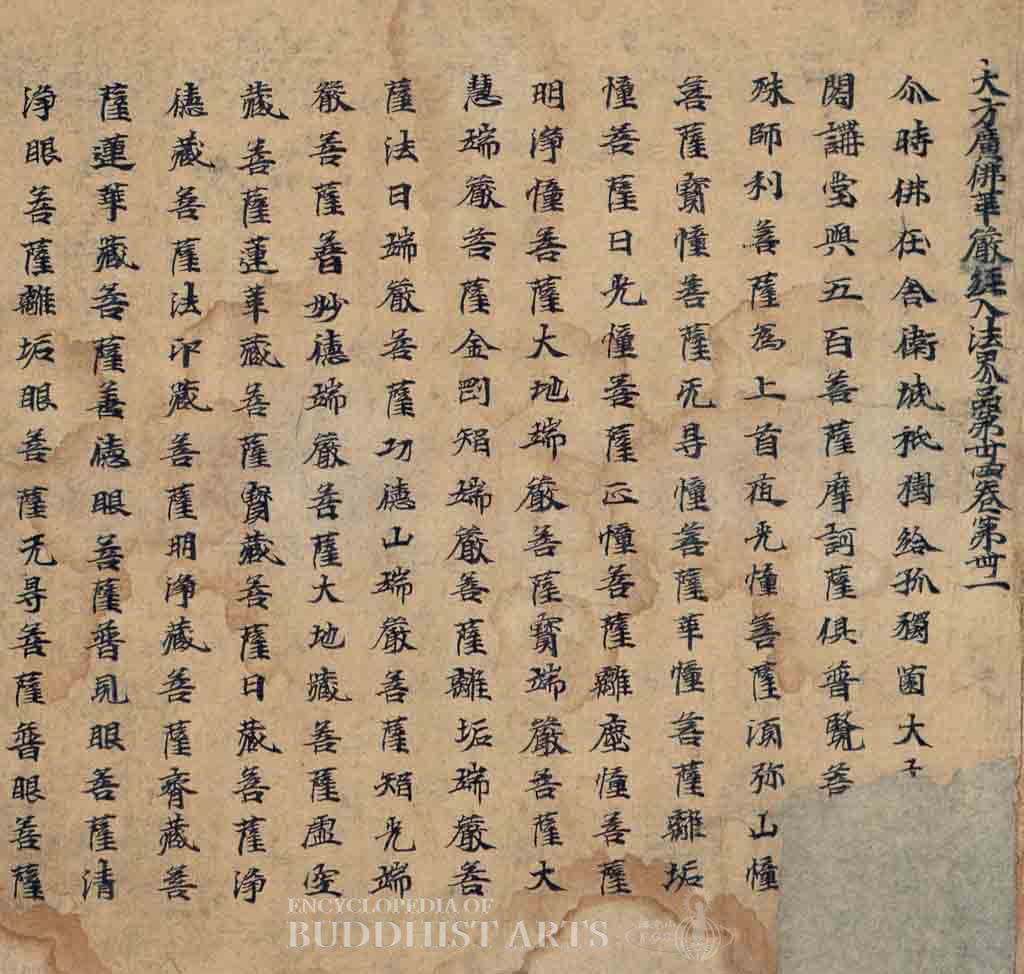 大方廣佛華嚴經入法界品第卅四卷第卌一
尒時佛在舍衛城祇樹給孤獨薗大
閣講堂與五百菩薩摩訶薩俱普賢菩
殊師利菩薩為上首夜光憧菩薩須弥山憧
菩薩寶憧菩薩无㝵憧菩薩華憧菩薩離垢
憧菩薩日光憧菩薩正憧菩薩離塵憧菩薩
明淨憧菩薩大地端嚴菩薩寶端嚴菩薩大
慧端嚴菩薩金剛智端嚴菩薩離垢端嚴菩
薩法日端嚴菩薩功德山端嚴菩薩智光端
嚴菩薩普妙德端嚴菩薩大地藏菩薩虛空
藏菩薩蓮華藏菩薩寶藏菩薩日藏菩薩淨
德藏菩薩法印藏菩薩明淨藏菩薩齊藏菩
薩蓮華藏菩薩善德眼菩薩普見眼菩薩清
淨眼菩薩離垢眼菩薩无㝵菩薩普眼菩薩
ENCYCLOPEDIA OF
BUDDHIST ARTS